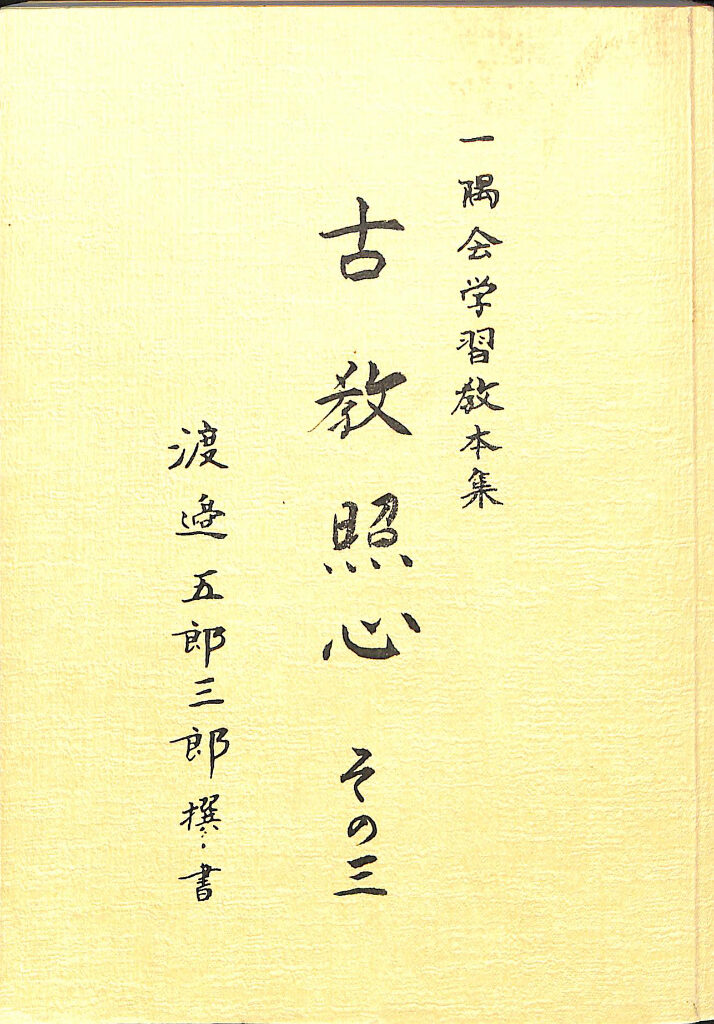 一隅会学習教本集
古教照心 その三
渡邉五郎三郎撰・書